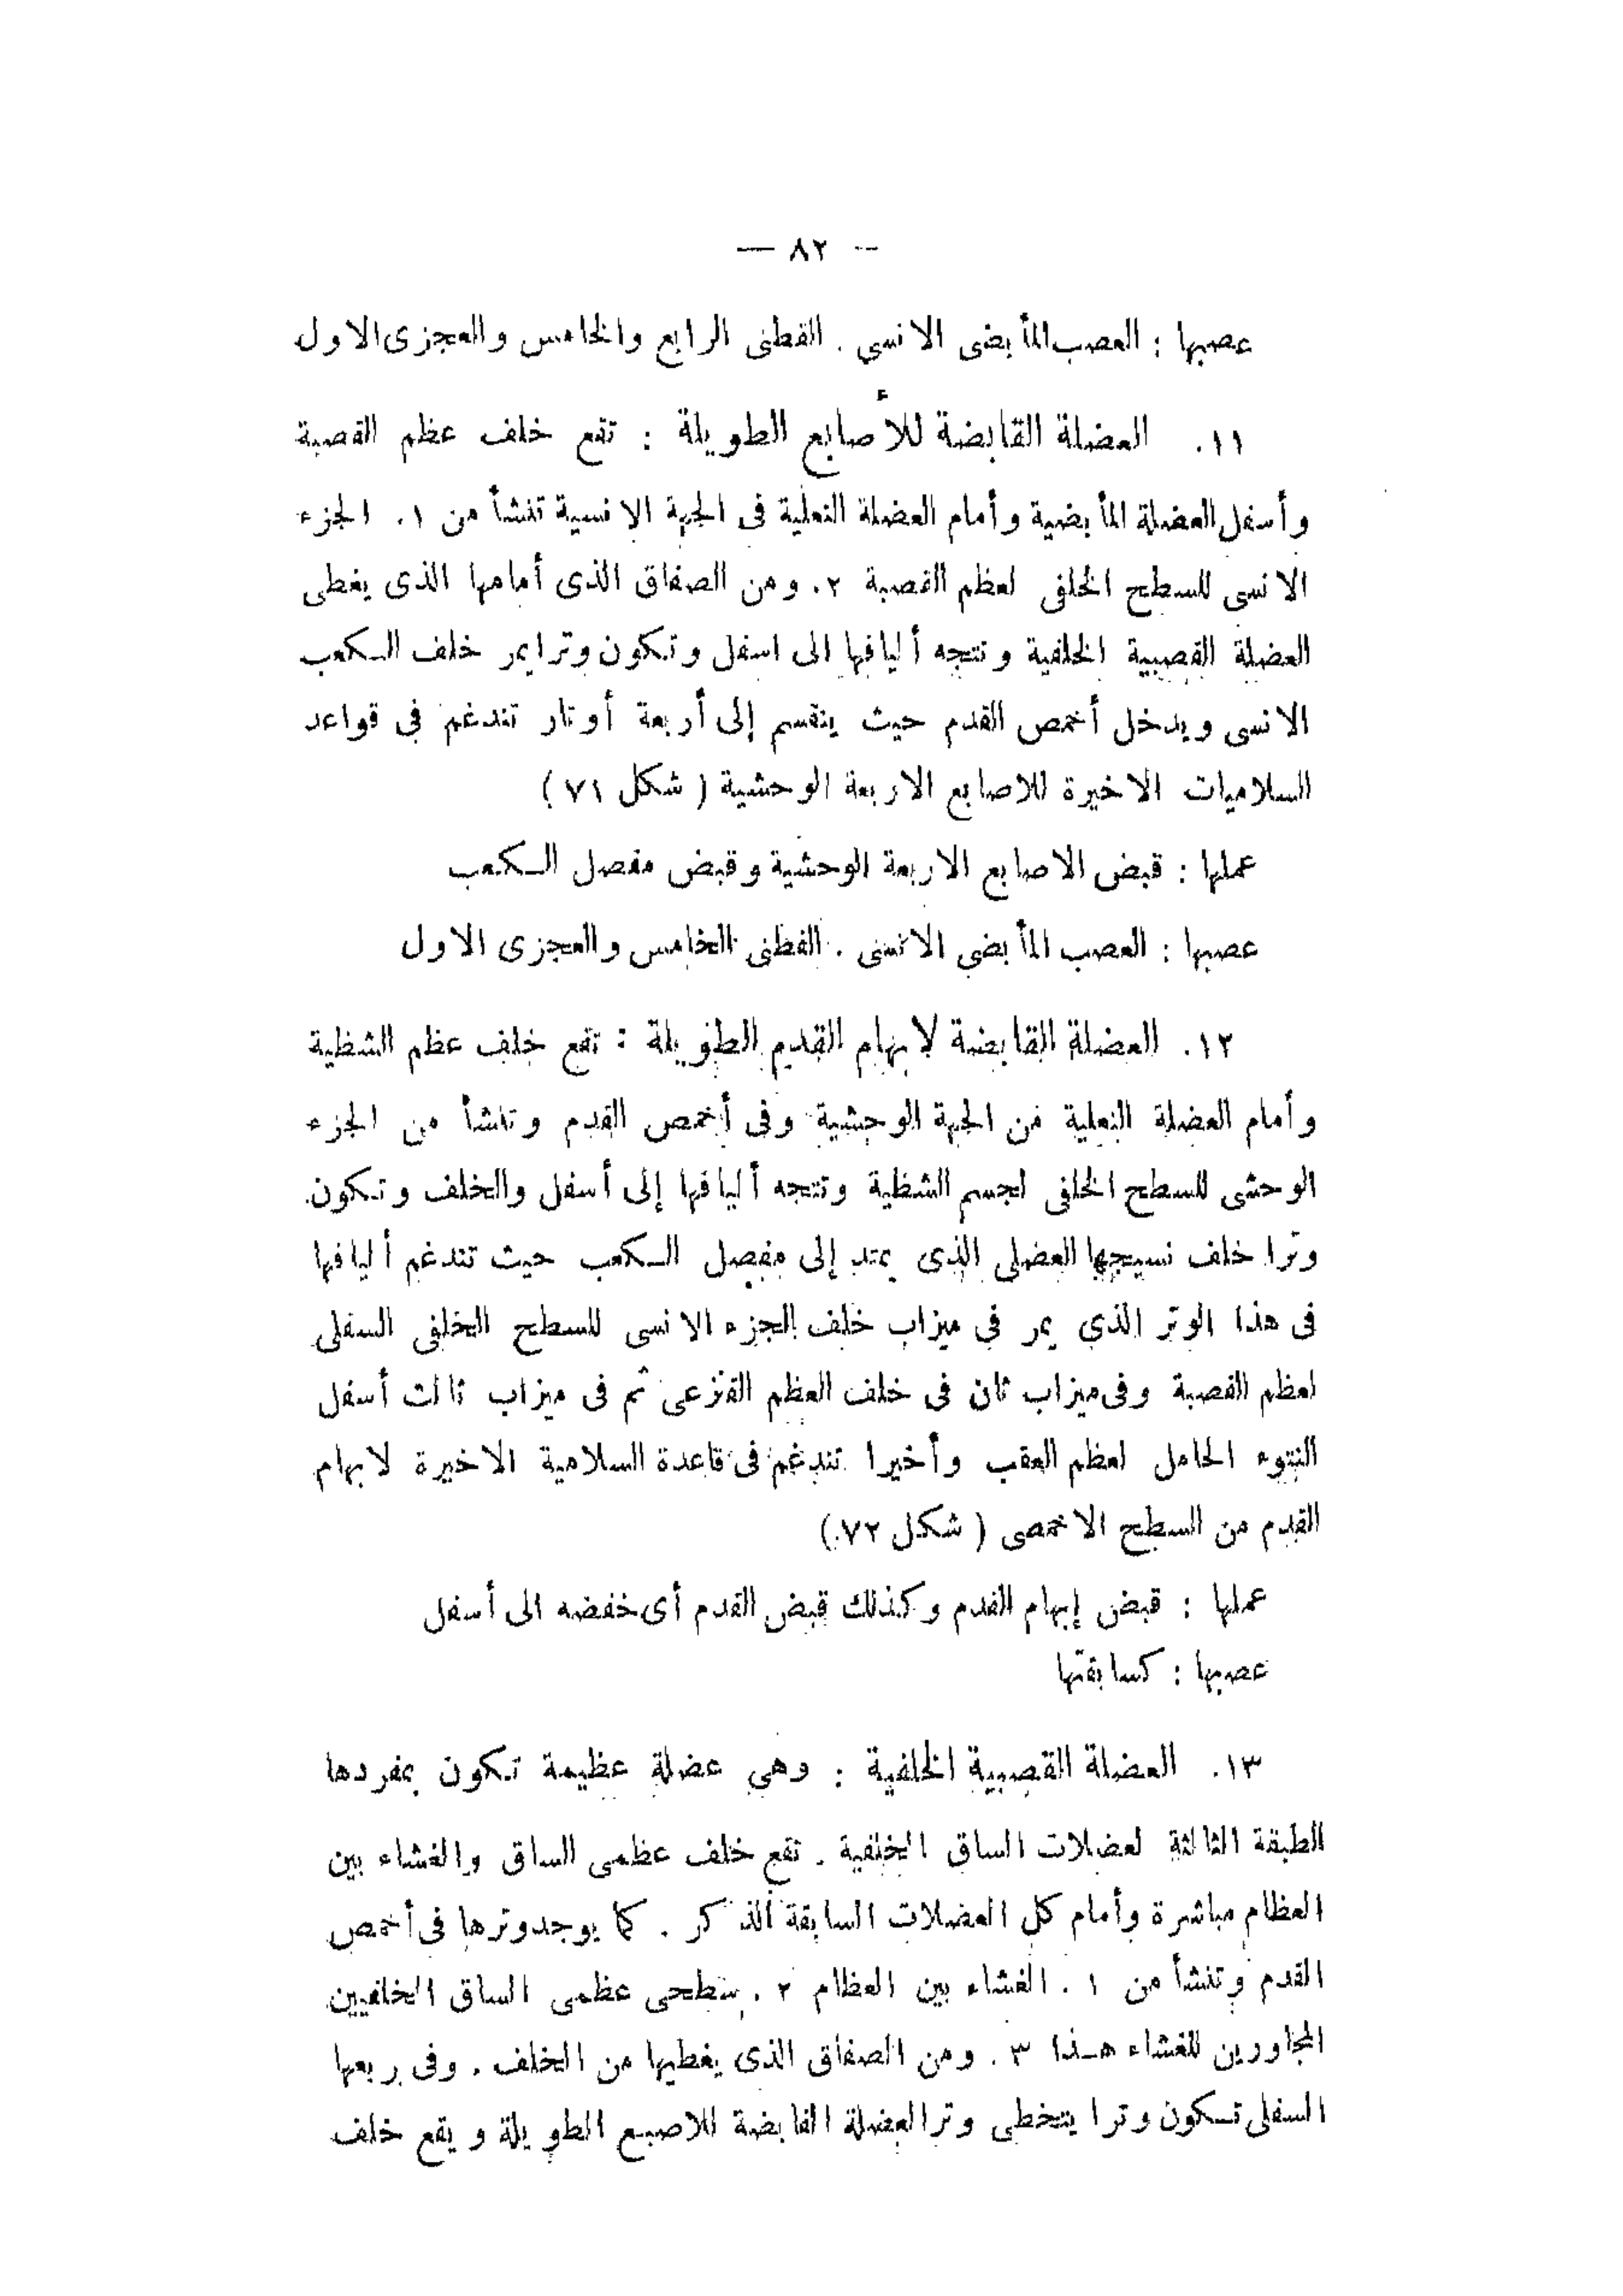 — ٨٢ —
عصبها : العصب المأبضى الانسي . القطنى الرابع والخامس والعجزى الاول
١١. العضلة القابضة للأصابع الطويلة : تقع خلف عظم القصبة
وأسفل العضلة المأبضية وأمام العضلة النعلية فى الجهة الانسية تنشأ من ١. الجزء
الانسى للسطح الخلفى لعظم القصبة ٢. ومن الصفاق الذى أمامها الذى يغطى
العضلة القصبية الخلفية وتتجه أليافها الى اسفل وتكون وترا يمر خلف الكعب
الانسى ويدخل أخمص القدم حيث ينقسم إلى أربعة أوتار تندغم فى قواعد
السلاميات الاخيرة للاصابع الاربعة الوحشية ( شكل ٧١ )
عملها : قبض الاصابع الاربعة الوحشية وقبض مفصل الكعب
عصبها : العصب المأبضى الانسى . القطنى الخامس والعجزى الاول
١٢. العضلة القابضة لابهام القدم الطويلة : تقع خلف عظم الشظية
وأمام العضلة النعلية من الجهة الوحشية وفى أخمص القدم وتنشأ من الجزء
الوحشى للسطح الخلفى لجسم الشظية وتتجه أليافها إلى أسفل والخلف وتكون
وترا خلف نسيجها العضلى الذى يمتد إلى مفصل الكعب حيث تندغم أليافها
فى هذا الوتر الذي يمر في ميزاب خلف الجزء الانسى للسطح الخلفى السفلى
لعظم القصبة وفى ميزاب ثان فى خلف العظم القنزعى ثم فى ميزاب ثالث أسفل
النتوء الحامل لعظم العقب وأخيرا تندغم فى قاعدة السلامية الاخيرة لابهام
القدم من السطح الاخمصى ( شكل ٧٢ )
عملها : قبض إبهام القدم وكذلك قبض القدم أى خفضه الى أسفل
عصبها : كسابقتها
١٣. العضلة القصبية الخلفية : وهي عضلة عظيمة تكون بمفردها
الطبقة الثالثة لعضلات الساق الخلفية . تقع خلف عظمى الساق والغشاء بين
العظام مباشرة وأمام كل العضلات السابقة الذكر . كما يوجد وترها فى أخمص
القدم وتنشأ من ١ . الغشاء بين العظام ٢ . سطحى عظمى الساق الخلفيين
المجاورين للغشاء هذا ٣ . ومن الصفاق الذى يغطيها من الخلف . وفى ربعها
السفلى تكون وترا يتخطى وتر العضلة القابضة للاصبع الطويلة ويقع خلف